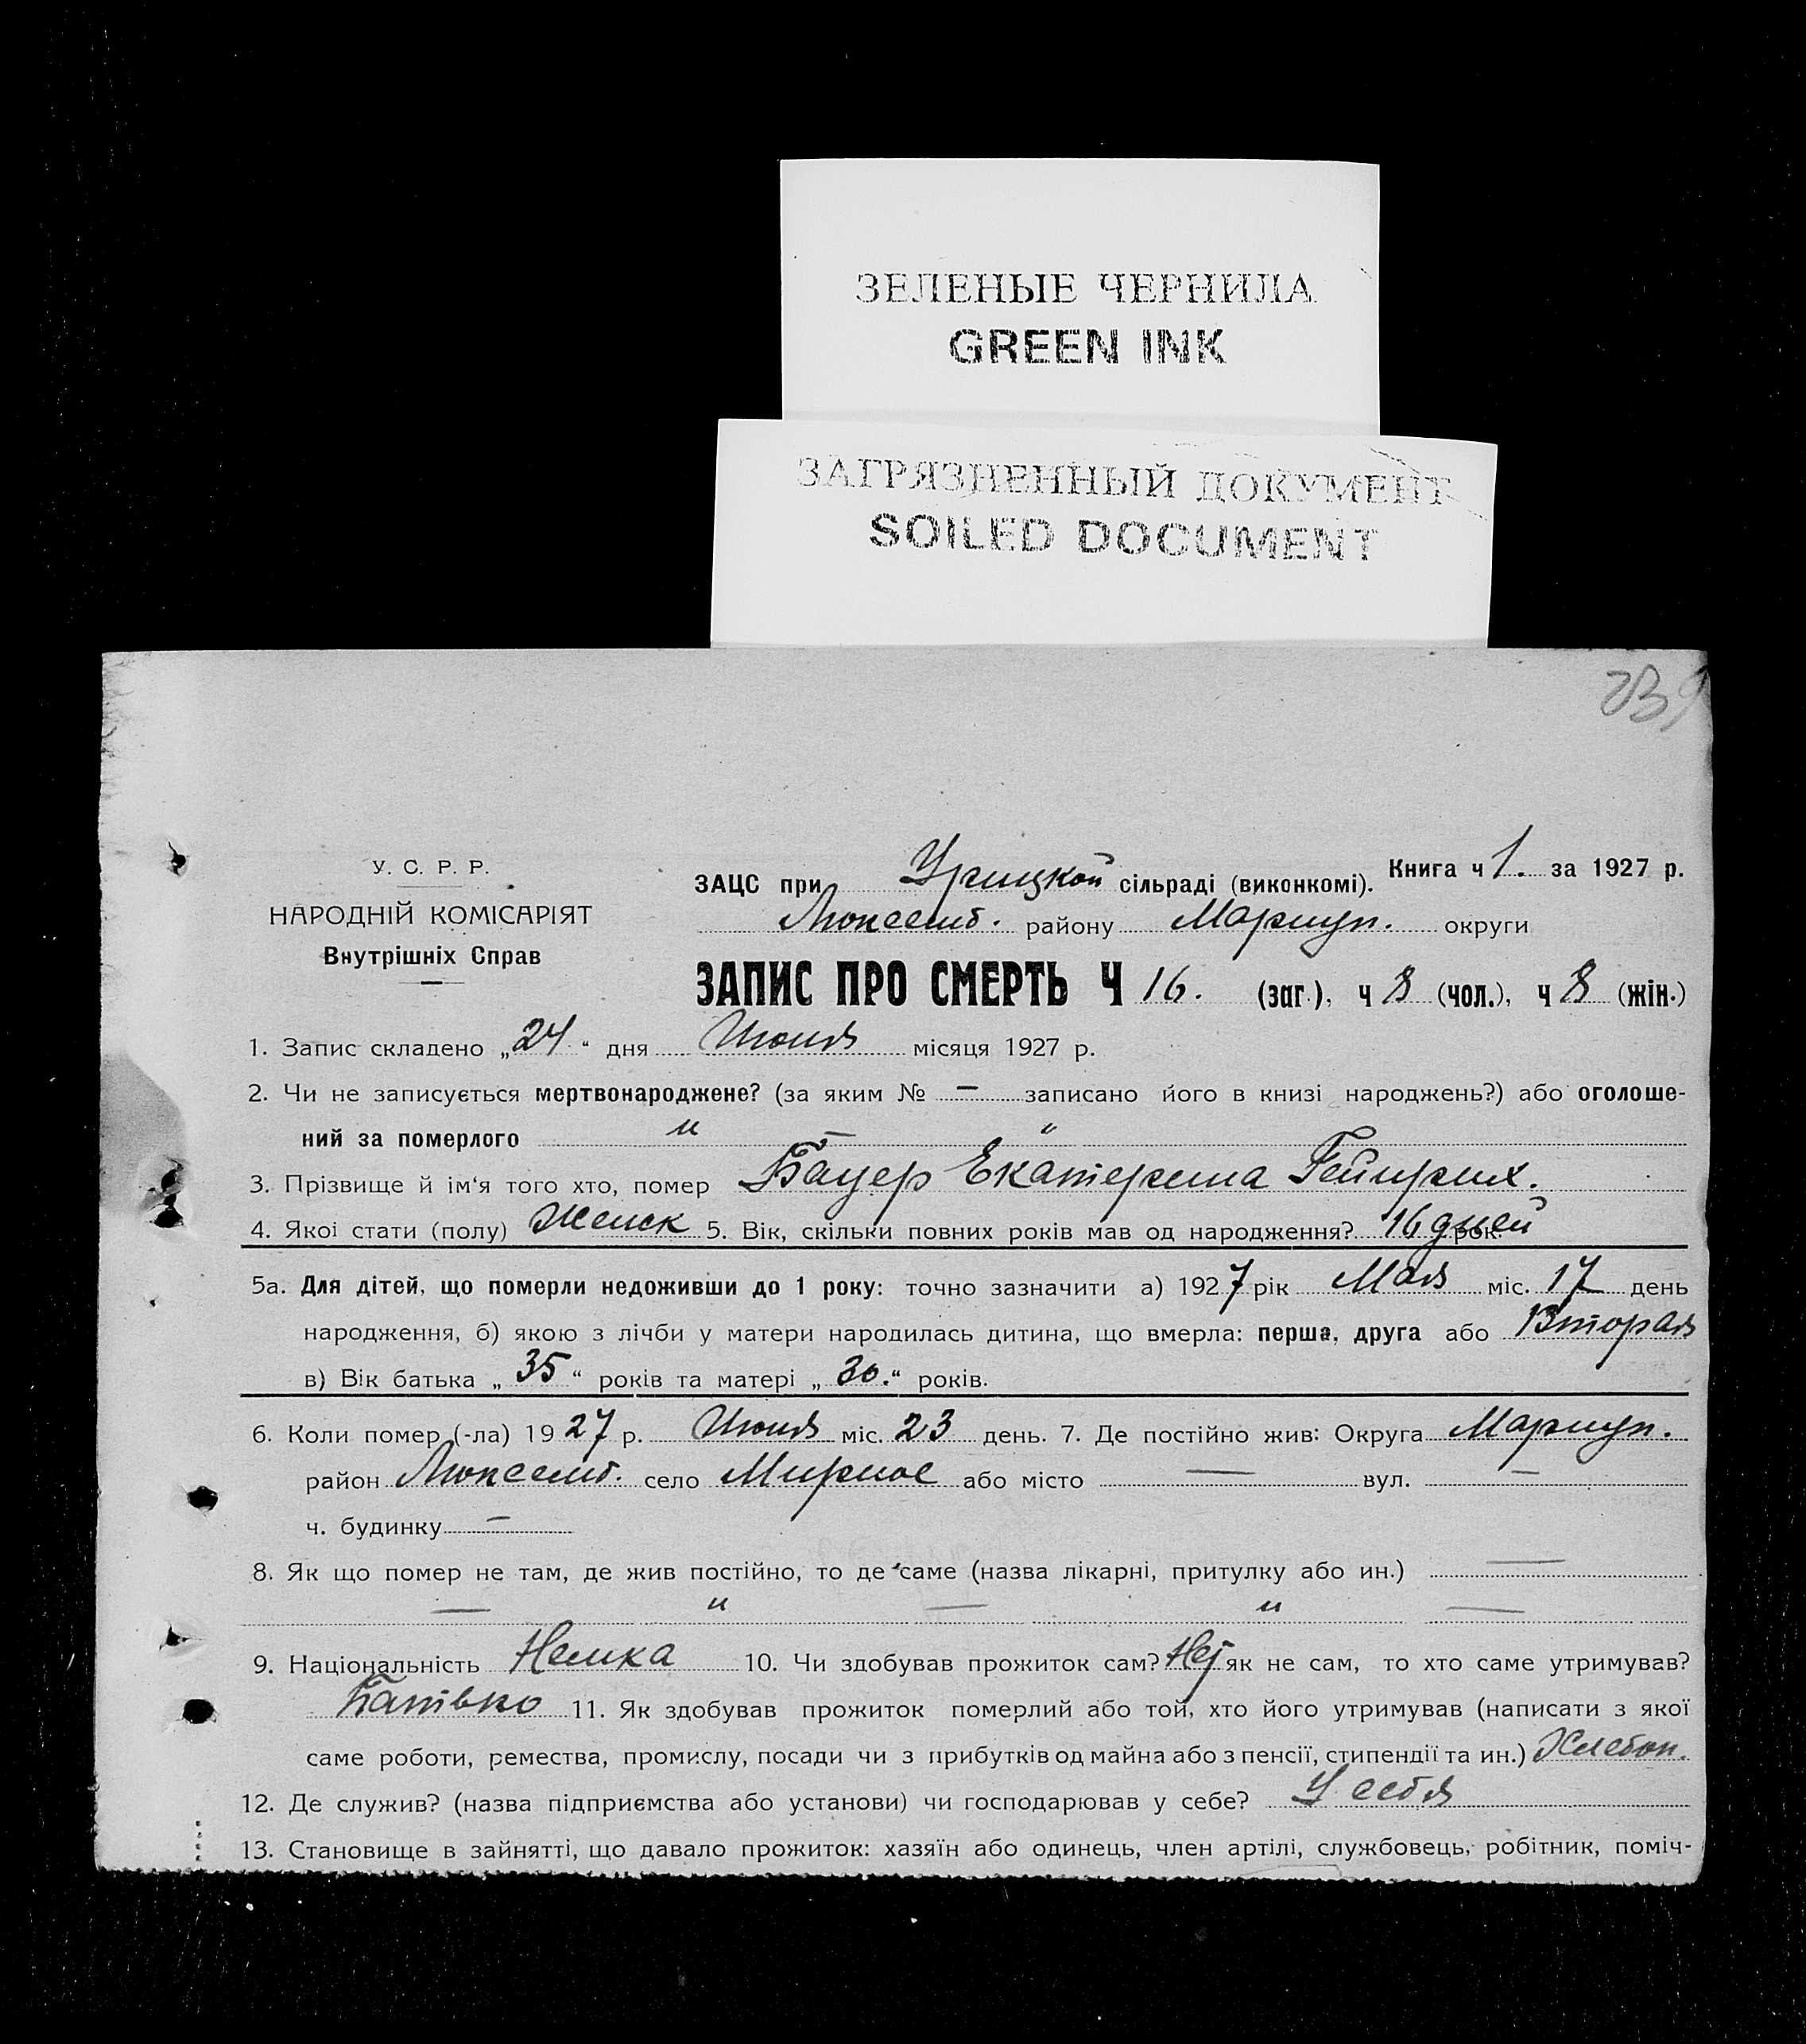 ЗЕЛЕНЫЕ ЧЕРНИЛА
GREEN INK
ЗАГРЯЗНЕННЫЙ ДОКУМЕНТ
SOILED DOCUMENT
У. С. Р. Р.
НАРОДНІЙ КОМІСАРІЯТ
Внутрішніх Справ
ЗАЦС при Урицкой сільраді (виконкомі). Книга ч 1. за 1927 р.
Люксемб. району Мариуп. округи
ЗАПИС ПРО СМЕРТЬ Ч 16. (заг.), ч 8 (чол.), ч 8 (жін.)
1. Запис складено „24“ дня Июня місяця 1927 р.
2. Чи не записується мертвонароджене? (за яким № — записано його в книзі народжень?) або оголоше-
ний за померлого " — "
3. Прізвище й ім'я того хто, помер Бауер Екатерина Гейнрих.
4. Якої стати (полу) Женск 5. Вік, скільки повних років мав од народження? 16 дней рок.
5а. Для дітей, що померли недоживши до 1 року: точно зазначити а) 1927 рік Мая міс. 17 день
народження, б) якою з лічби у матери народилась дитина, що вмерла: перша, друга або Вторая
в) Вік батька „35“ років та матері „30.“ років.
6. Коли помер (-ла) 1927 р. Июня міс. 23 день. 7. Де постійно жив: Округа Мариуп.
район Люксемб. село Мирное або місто — вул. —
ч. будинку —
8. Як що помер не там, де жив постійно, то де саме (назва лікарні, притулку або ин.) —
— " — " —
9. Національність Немка 10. Чи здобував прожиток сам? Нет як не сам, то хто саме утримував?
Батько 11. Як здобував прожиток померлий або той, хто його утримував (написати з якої
саме роботи, ремества, промислу, посади чи з прибутків од майна або з пенсії, стипендії та ин.) Хлебоп.
12. Де служив? (назва підприємства або установи) чи господарював у себе? У себя
13. Становище в зайнятті, що давало прожиток: хазяїн або одинець, член артілі, службовець, робітник, поміч-